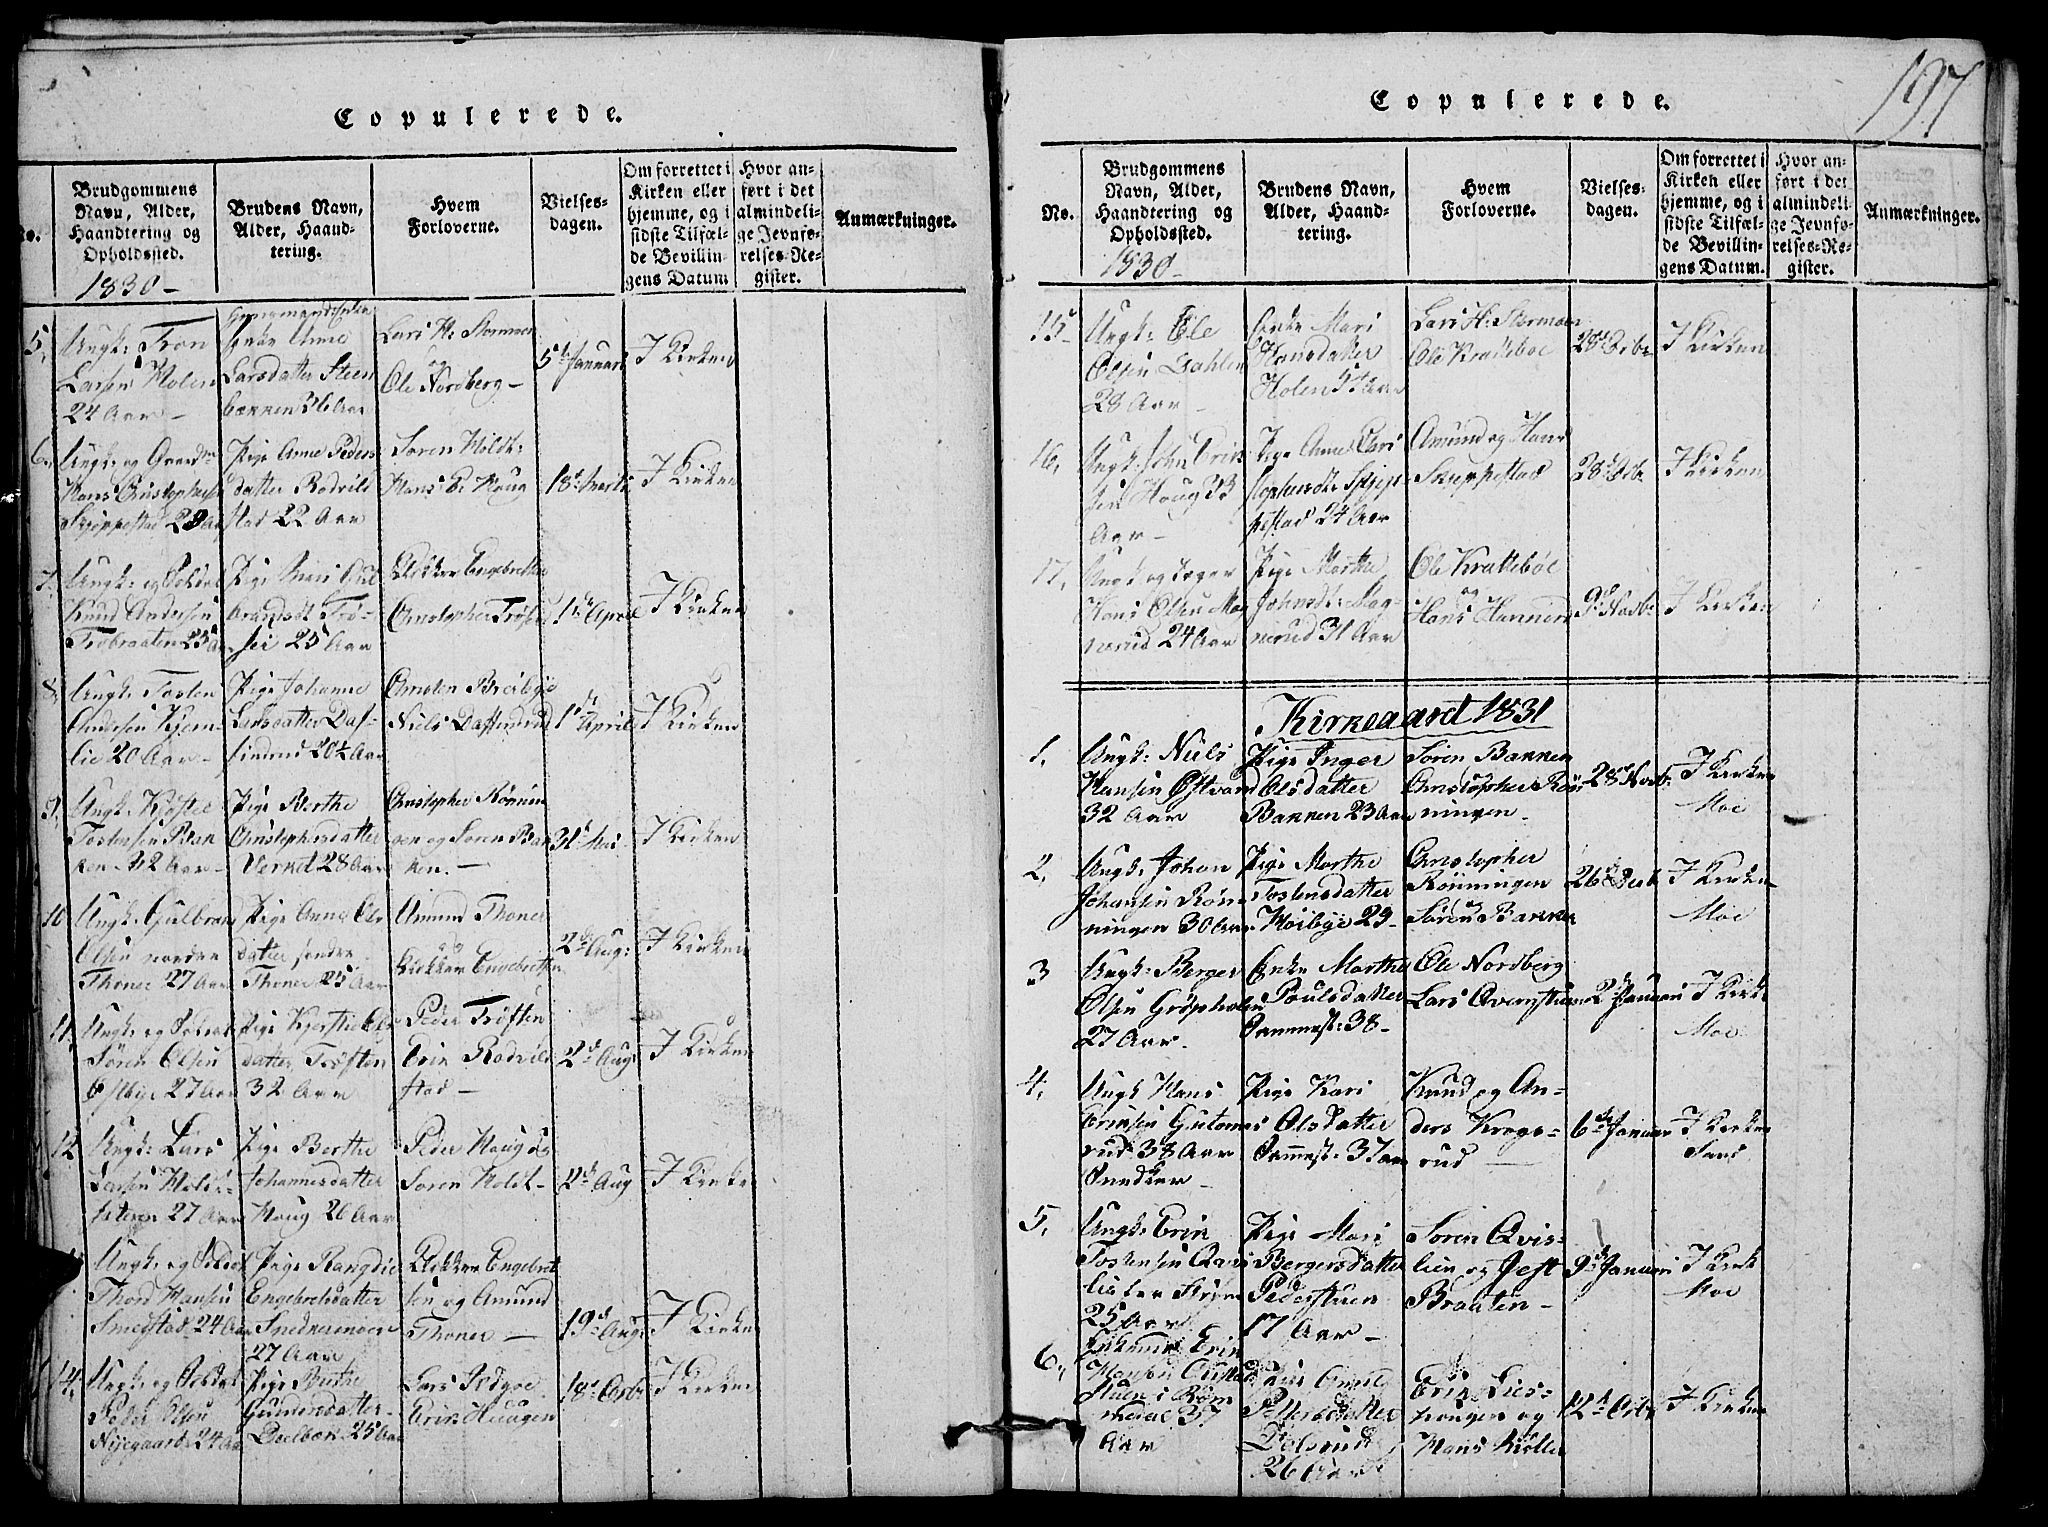 Copulerede.
No.
Brudgommens
Navn, Alder,
Haandtering og
Opholdssted.
1830 –
Brudens Navn,
Alder, Haand-
tering.
Hvem
Forloverne.
Vielses-
dagen.
Om forrettet i
Kirken eller
hjemme, og i
sidste Tilfæl-
de Bevillin-
gens Datum
Hvor an-
ført i det
almindeli-
ge Jevnfø-
relses-Re-
gister.
Anmærkninger.
5.
Ungk: Tron
Larsen Holen
24 Aar –
Enke Anne
Larsdatter Steen
bækken 26 Aar
Lars H: Stormoen
og
Ole Nordberg –
5t Januari
I Kirken
6.
Ungk: og
Hans Christophersen
Skjeppestad 29 Aar
Pige Anne Peders
datter Rodvild
stad 22 Aar
Soren Holdt:
Hans E: Haug
18d Marts
I Kirken
7.
Ungk: og Soldat
Knud Andersen
Frobraaten 25 Aar
Pige Mari Gul
brandsdt Frø-
sei 25 Aar
Engebretsen
Christopher Frøsei
1d April
I Kirken
8.
Ungk: Tosten
Andersen Kjem-
lie 20 Aar –
Pige Johanne
Larsdatter Daf-
finrud 20½ Aar
Amsten Breibye
Niels Daffinrud
1d April
I Kirken
9.
Ungk: Kjøstel
Tostensen Bak
ken 32 Aar –
Pige Berthe
Christophersdatter
Verket 28 Aar
Christopher Rønnin
gen og Soren Bak
ken. –
31d Mai
I Kirken
10
Ungk: Gulbrand
Olsen nordre
Thoner 27 Aar
Pige Anne Ols
datter søndre
Thoner 25 Aar
Amund Thoner
og
Engebretsen
2d Aug:
I Kirken
11.
Ungk: og Soldat
Søren Olsen
Østbye 27 Aar
Pige Kjersti Ols
datter Trøften
32 Aar
Peder Trøften
Erik Rodvild
stad –
2d Aug:
I Kirken
12
Ungk: Lars
Larsen
27 Aar
Pige Berthe
Johannesdatter
Haug 26 Aar
Peder Haug og
Soren Holdt –
2d Aug
I Kirken
Ungk: og Soldat
Thord Hansen
Smedstad 24 Aar
Pige Rangdi
Engebretsdatter
Snedkermoen
27 Aar
Engebret
sen og Amund
Thoner –
19d Aug:
I Kirken
14.
Ungk: og Soldat
Peder Olsen
Nyegaard 24 Aar
Pige Berthe
Gunersdatter
25 Aar
Lars
Erik Haugen
18d Octbr
I Kirken
197
Copulerede.
No.
Brudgommens
Navn, Alder,
Haandtering og
Opholdssted.
1830 –
Brudens Navn,
Alder, Haand-
tering.
Hvem
Forloverne.
Vielses-
dagen.
Om forrettet i
Kirken eller
hjemme, og i
sidste Tilfæl-
de Bevillin-
gens Datum.
Hvor an-
ført i det
almindeli-
ge Jevnfø-
relses-Re-
gister.
Anmærkninger.
15
Ungk: Ole
Olsen Dahlen
28 Aar –
Enke Mari
Hansdatter
Holen 54 Aar
Lars H: Stormoen
Ole Kratteboe
28d Octbr
I Kirken
16.
Ungk: John Erik
sen Haug 33
Aar –
Pige Anne Chri
stophersdt: Skjep
pestad 24 Aar
Amund og Hans
Skjeppestad
28d Octbr
I Kirken
17.
Ungk og Jæger
Hans Olsen Mag
nerud 24 Aar
Pige Marthe
Johnsdt: Mag-
nerud 31 Aar
Ole Kratteboe
og
Hans
9d Novbr
I Kirken
Kirkeaaret 1831
1.
Ungk: Niels
Hansen Østvand
32 Aar
Pige Inger
Olsdatter
Bakken 23 Aar
Søren Bakken
Christopher Røn
ningen –
28d Novb:
I Kirken
Moe
2.
Ungk: Johan
Johansen Røn
ningen 30 Aar
Pige Marthe
Tostensdatter
Høibye 29 –
Christopher
Rønningen
og
Søren Bakken
26d Decb
I Kirken
Moe
3
Ungk: Berger
Olsen Grøpholen
27 Aar.
Enke Marthe
Poulsdatter
38 –
Ole Nordberg
Lars Qvernstuen
2d Januari
I Kirk.
Moe
4.
Ungk Hans
Eriksen Gutorms
rud 38 Aar
Snedker –
Pige Kari
Olsdatter
37 Aar
Knud og An-
ders Krogs-
rud –
6d Januar
I Kirken
5.
Ungk: Erik
Tostensen Qvis
lien
25 Aar
Pige Mari
Bergersdatter
Pederstuen
17 Aar –
Soren Qvis-
lien og Jest
Braaten –
9d Januari
I Kirk
Moe
6.
Enkemand Erik
Hansen
i Røm
37
Aar
Pige
Pettersdatter
26 Aar
Erik Lies-
haugen og
Hans Møller
12d Octb:
I Kirken